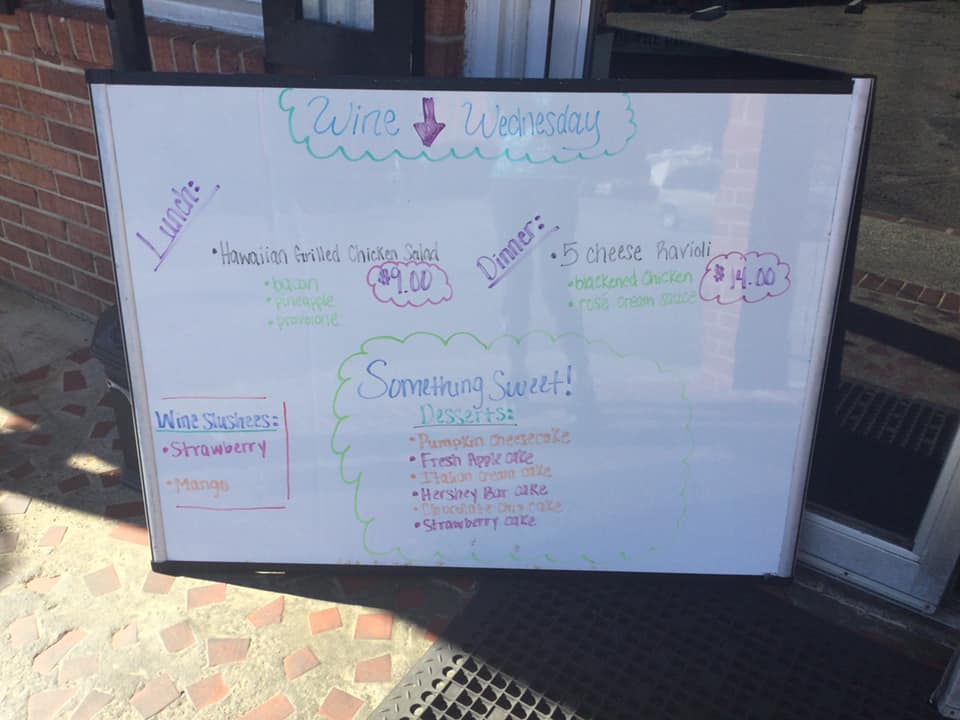 Wine ↓ Wednesday
Lunch:
• Hawaiian Grilled Chicken Salad
• bacon
• pineapple
• provolone
$9.00
Dinner:
• 5 cheese Ravioli
• blackened chicken
• rosé cream sauce
$14.00
Wine Slushees:
• Strawberry
• Mango
Something Sweet!
Desserts:
• Pumpkin cheesecake
• Fresh Apple cake
• Italian cream cake
• Hershey Bar cake
• Chocolate chip cake
• Strawberry cake